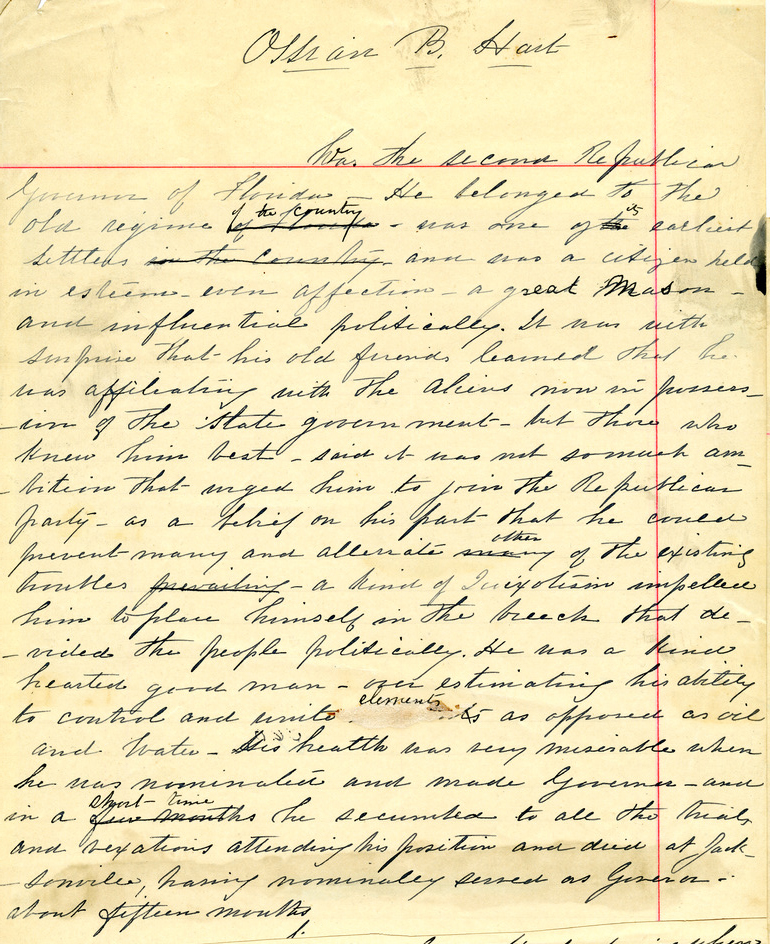 Ossian B. Hart
Was the second Republican
Governor of Florida - He belonged to the
old regime of the Country of Florida - was one of the its earliest
settlers in the Country - and was a citizen held
in esteem - even affection - a great Mason -
and influential politically. It was with
surprise that his old friends learned that he
was affiliating with the Aliens now in possess-
-ion of the State government - but those who
knew him best - said it was not so much am
-bition that urged him to join the Republican
party - as a belief on his part that he could
prevent many and alleviate many other of the existing
troubles prevailing - a kind of Quixotism impelled
him to place himself in the breech that de-
-vided the people politically. He was a kind
hearted good man - over estimating his ability
to control and unite elements as opposed as oil
and Water - His health was very miserable when
he was nominated and made Governor - and
in a few months short time he secumbed to all the trials
and vexations attending his position and died at Jack-
-sonville, having nominally served as Governor -
about fifteen months.